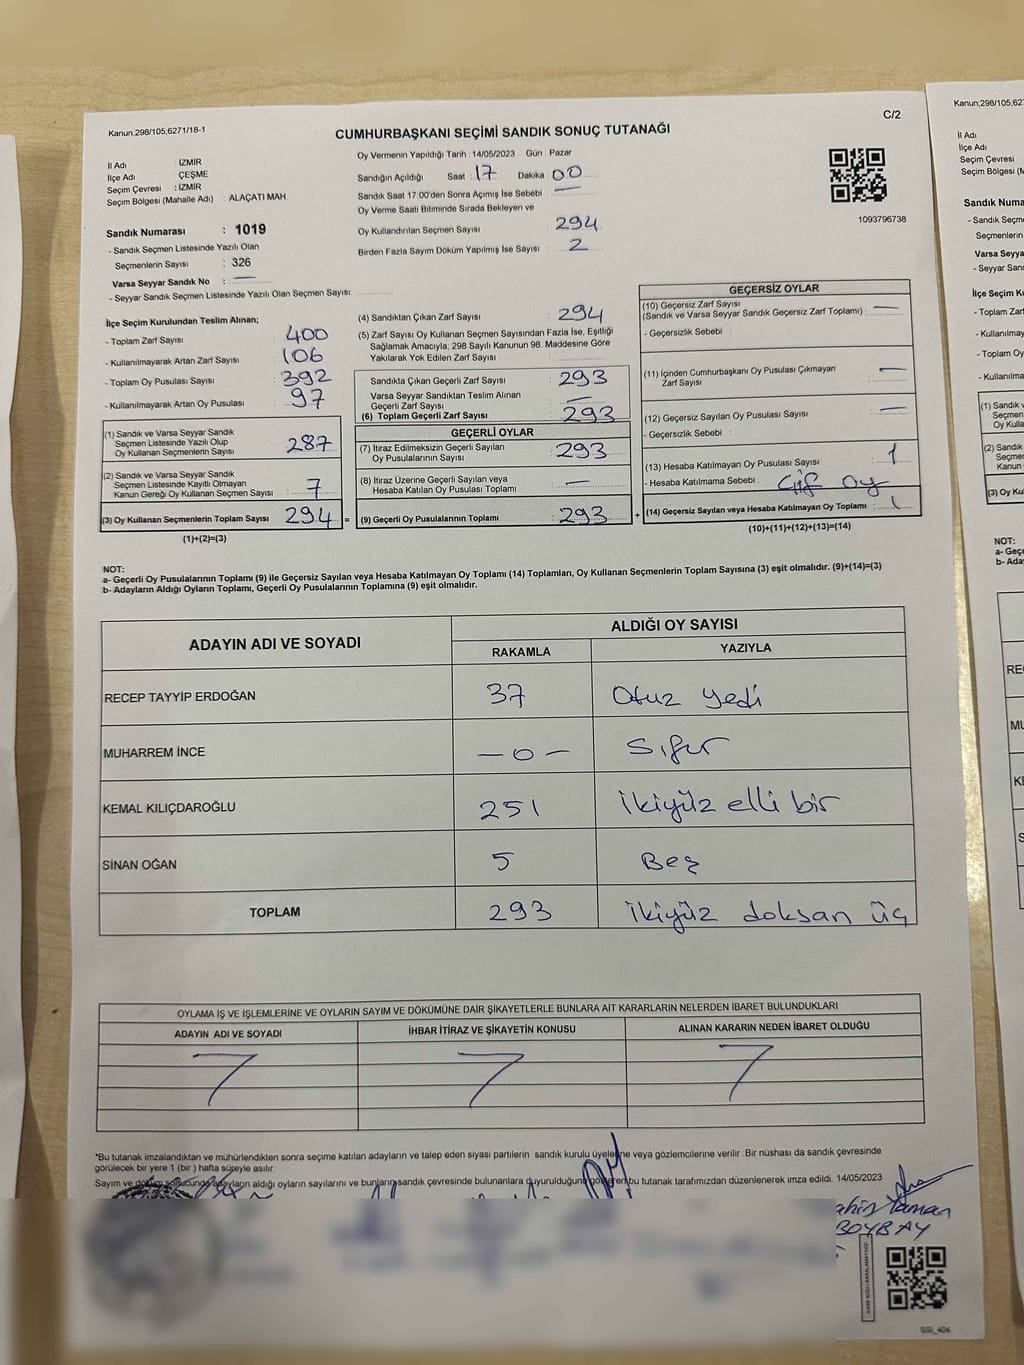 Kanun,298/105,6271/18-1
C/2
CUMHURBAŞKANI SEÇİMİ SANDIK SONUÇ TUTANAĞI
İl Adı : İZMİR
İlçe Adı : ÇEŞME
Seçim Çevresi : İZMİR
Seçim Bölgesi (Mahalle Adı) : ALAÇATI MAH.
Sandık Numarası : 1019
- Sandık Seçmen Listesinde Yazılı Olan
Seçmenlerin Sayısı : 326
Varsa Seyyar Sandık No : —
- Seyyar Sandık Seçmen Listesinde Yazılı Olan Seçmen Sayısı:
Oy Vermenin Yapıldığı Tarih : 14/05/2023 Gün : Pazar
Sandığın Açıldığı Saat : 17 Dakika 00
Sandık Saat 17:00'den Sonra Açımış İse Sebebi : —
Oy Verme Saati Bitiminde Sırada Bekleyen ve
Oy Kullandırılan Seçmen Sayısı : 294
Birden Fazla Sayım Döküm Yapılmış İse Sayısı : 2
1093796738
İlçe Seçim Kurulundan Teslim Alınan;
- Toplam Zarf Sayısı : 400
- Kullanılmayarak Artan Zarf Sayısı : 106
- Toplam Oy Pusulası Sayısı : 392
- Kullanılmayarak Artan Oy Pusulası : 97
(1) Sandık ve Varsa Seyyar Sandık
Seçmen Listesinde Yazılı Olup
Oy Kullanan Seçmenlerin Sayısı : 287
(2) Sandık ve Varsa Seyyar Sandık
Seçmen Listesinde Kayıtlı Olmayan
Kanun Gereği Oy Kullanan Seçmen Sayısı : 7
(3) Oy Kullanan Seçmenlerin Toplam Sayısı : 294 =
(1)+(2)=(3)
(4) Sandıktan Çıkan Zarf Sayısı : 294
(5) Zarf Sayısı Oy Kullanan Seçmen Sayısından Fazla İse, Eşitliği
Sağlamak Amacıyla, 298 Sayılı Kanunun 98. Maddesine Göre
Yakılarak Yok Edilen Zarf Sayısı :
Sandıkta Çıkan Geçerli Zarf Sayısı : 293
Varsa Seyyar Sandıktan Teslim Alınan
Geçerli Zarf Sayısı : —
(6) Toplam Geçerli Zarf Sayısı : 293
GEÇERLİ OYLAR
(7) İtiraz Edilmeksizin Geçerli Sayılan
Oy Pusulalarının Sayısı : 293
(8) İtiraz Üzerine Geçerli Sayılan veya
Hesaba Katılan Oy Pusulası Toplamı : —
(9) Geçerli Oy Pusulalarının Toplamı : 293 +
GEÇERSİZ OYLAR
(10) Geçersiz Zarf Sayısı
(Sandık ve Varsa Seyyar Sandık Geçersiz Zarf Toplamı) : —
- Geçersizlik Sebebi :
(11) İçinden Cumhurbaşkanı Oy Pusulası Çıkmayan
Zarf Sayısı : —
(12) Geçersiz Sayılan Oy Pusulası Sayısı : —
- Geçersizlik Sebebi :
(13) Hesaba Katılmayan Oy Pusulası Sayısı : 1
- Hesaba Katılmama Sebebi : Çift Oy
(14) Geçersiz Sayılan veya Hesaba Katılmayan Oy Toplamı : 1
(10)+(11)+(12)+(13)=(14)
NOT:
a- Geçerli Oy Pusulalarının Toplamı (9) ile Geçersiz Sayılan veya Hesaba Katılmayan Oy Toplamı (14) Toplamları, Oy Kullanan Seçmenlerin Toplam Sayısına (3) eşit olmalıdır. (9)+(14)=(3)
b- Adayların Aldığı Oyların Toplamı, Geçerli Oy Pusulalarının Toplamına (9) eşit olmalıdır.
ADAYIN ADI VE SOYADI
ALDIĞI OY SAYISI
RAKAMLA YAZIYLA
RECEP TAYYİP ERDOĞAN 37 Otuz yedi
MUHARREM İNCE —0— Sıfır
KEMAL KILIÇDAROĞLU 251 İkiyüz elli bir
SİNAN OĞAN 5 Beş
TOPLAM 293 İkiyüz doksan üç
OYLAMA İŞ VE İŞLEMLERİNE VE OYLARIN SAYIM VE DÖKÜMÜNE DAİR ŞİKAYETLERLE BUNLARA AİT KARARLARIN NELERDEN İBARET BULUNDUKLARI
ADAYIN ADI VE SOYADI İHBAR İTİRAZ VE ŞİKAYETİN KONUSU ALINAN KARARIN NEDEN İBARET OLDUĞU
*Bu tutanak imzalandıktan ve mühürlendikten sonra seçime katılan adayların ve talep eden siyasi partilerin sandık kurulu üyelerine veya gözlemcilerine verilir .Bir nüshası da sandık çevresinde
görülecek bir yere 1 (bir ) hafta süreyle asılır.
Sayım ve döküm sonucunda adayların aldığı oyların sayılarını ve bunların sandık çevresinde bulunanlara duyurulduğunu gösteren bu tutanak tarafımızdan düzenlenerek imza edildi. 14/05/2023
Yaman
BOYBAY
SGİ_404
Kanun,298/105,627
İl Adı
İlçe Adı
Seçim Çevresi
Seçim Bölgesi (M
Sandık Numa